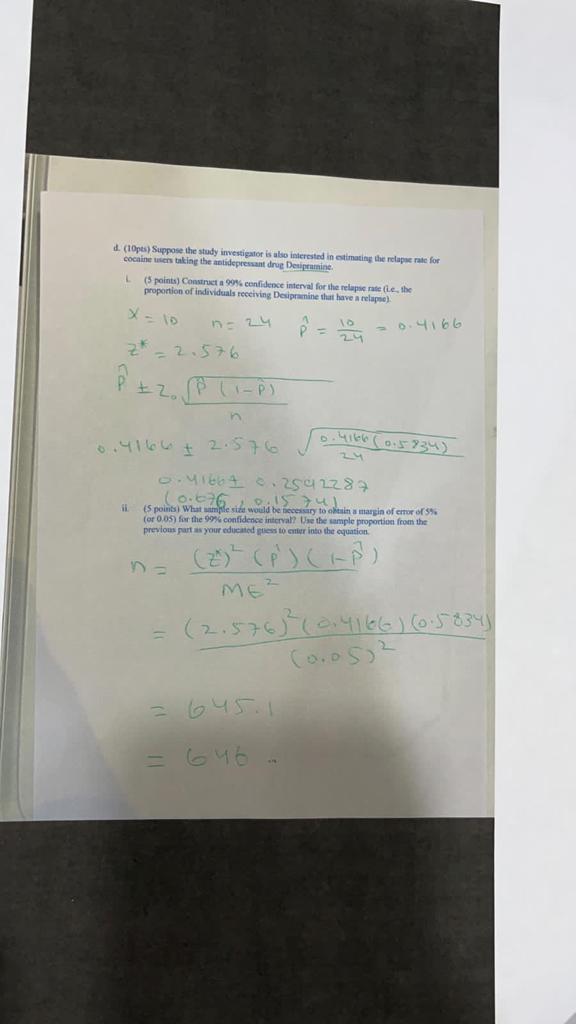 d. (10pts) Suppose the study investigator is also interested in estimating the relapse rate for
cocaine users taking the antidepressant drug Desipramine.
i. (5 points) Construct a 99% confidence interval for the relapse rate (i.e., the
proportion of individuals receiving Desipramine that have a relapse).
X = 10 n = 24 p̂ = 10/24 = 0.4166
z* = 2.576
p̂ ± z. √p̂ (1-p̂)
n
0.4166 ± 2.576 √0.4166(0.5834)
24
0.4166± 0.2592287
(0.676, 0.1574)
ii. (5 points) What sample size would be necessary to obtain a margin of error of 5%
(or 0.05) for the 99% confidence interval? Use the sample proportion from the
previous part as your educated guess to enter into the equation.
n = (z*)² (p̂) (1-p̂)
ME²
= (2.576)² (0.4166) (0.5834)
(0.05)²
= 645.1
= 646 ..